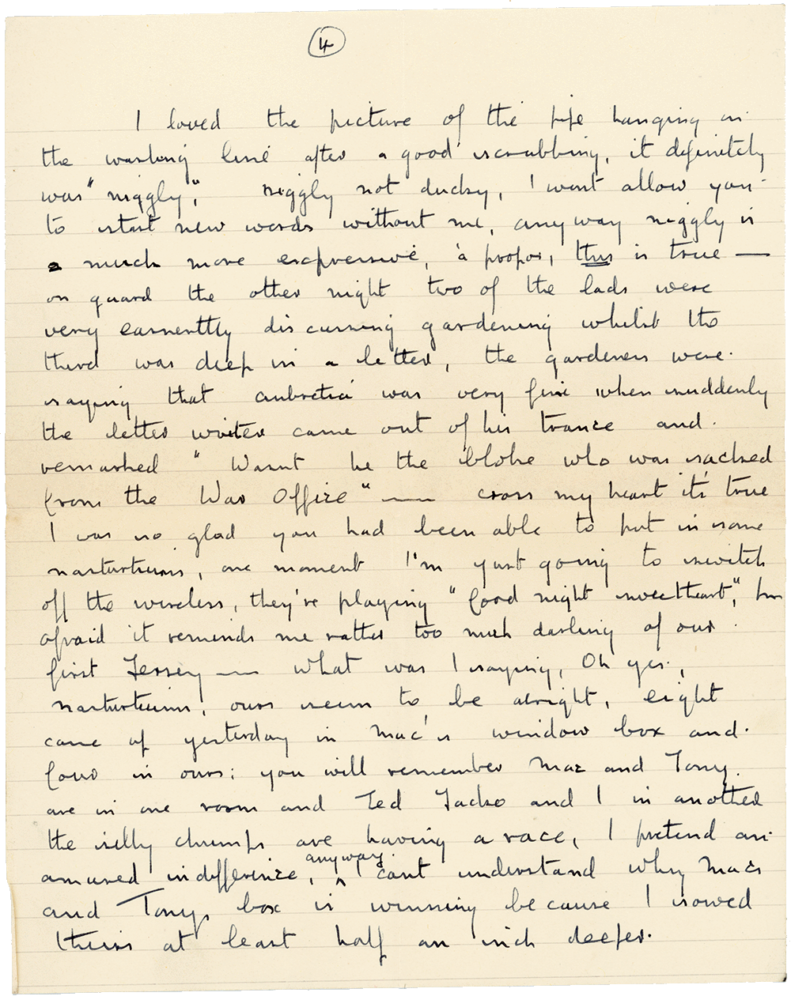 4
I loved the picture of the pipe hanging on
the washing line after a good scrubbing, it definitely
was "niggly", niggly not ducky, I wont allow you
to start new words without me, anyway niggly is
a much more expressive, à propos, this is true —
on guard the other night two of the lads were
very earnestly discussing gardening whilst the
third was deep in a letter, the gardeners were
saying that aubretia was very fine when suddenly
the letter writer came out of his trance and
remarked "Wasnt he the bloke who was sacked
from the War Office" — cross my heart its true
I was so glad you had been able to put in some
nasturtiums, one moment I'm just going to switch
off the wireless, they're playing "Good night sweetheart", I'm
afraid it reminds me rather too much darling of our
first Jersey — what was I saying, Oh yes,
nasturtiums, ours seem to be alright, eight
came up yesterday in Mac's window box and
four in ours; you will remember Mac and Tony
are in one room and Ted Jacko and I in another
the silly chumps are having a race, I pretend an
amused indifference, anyway I cant understand why Macs
and Tonys box is winning because I sowed
theirs at least half an inch deeper.